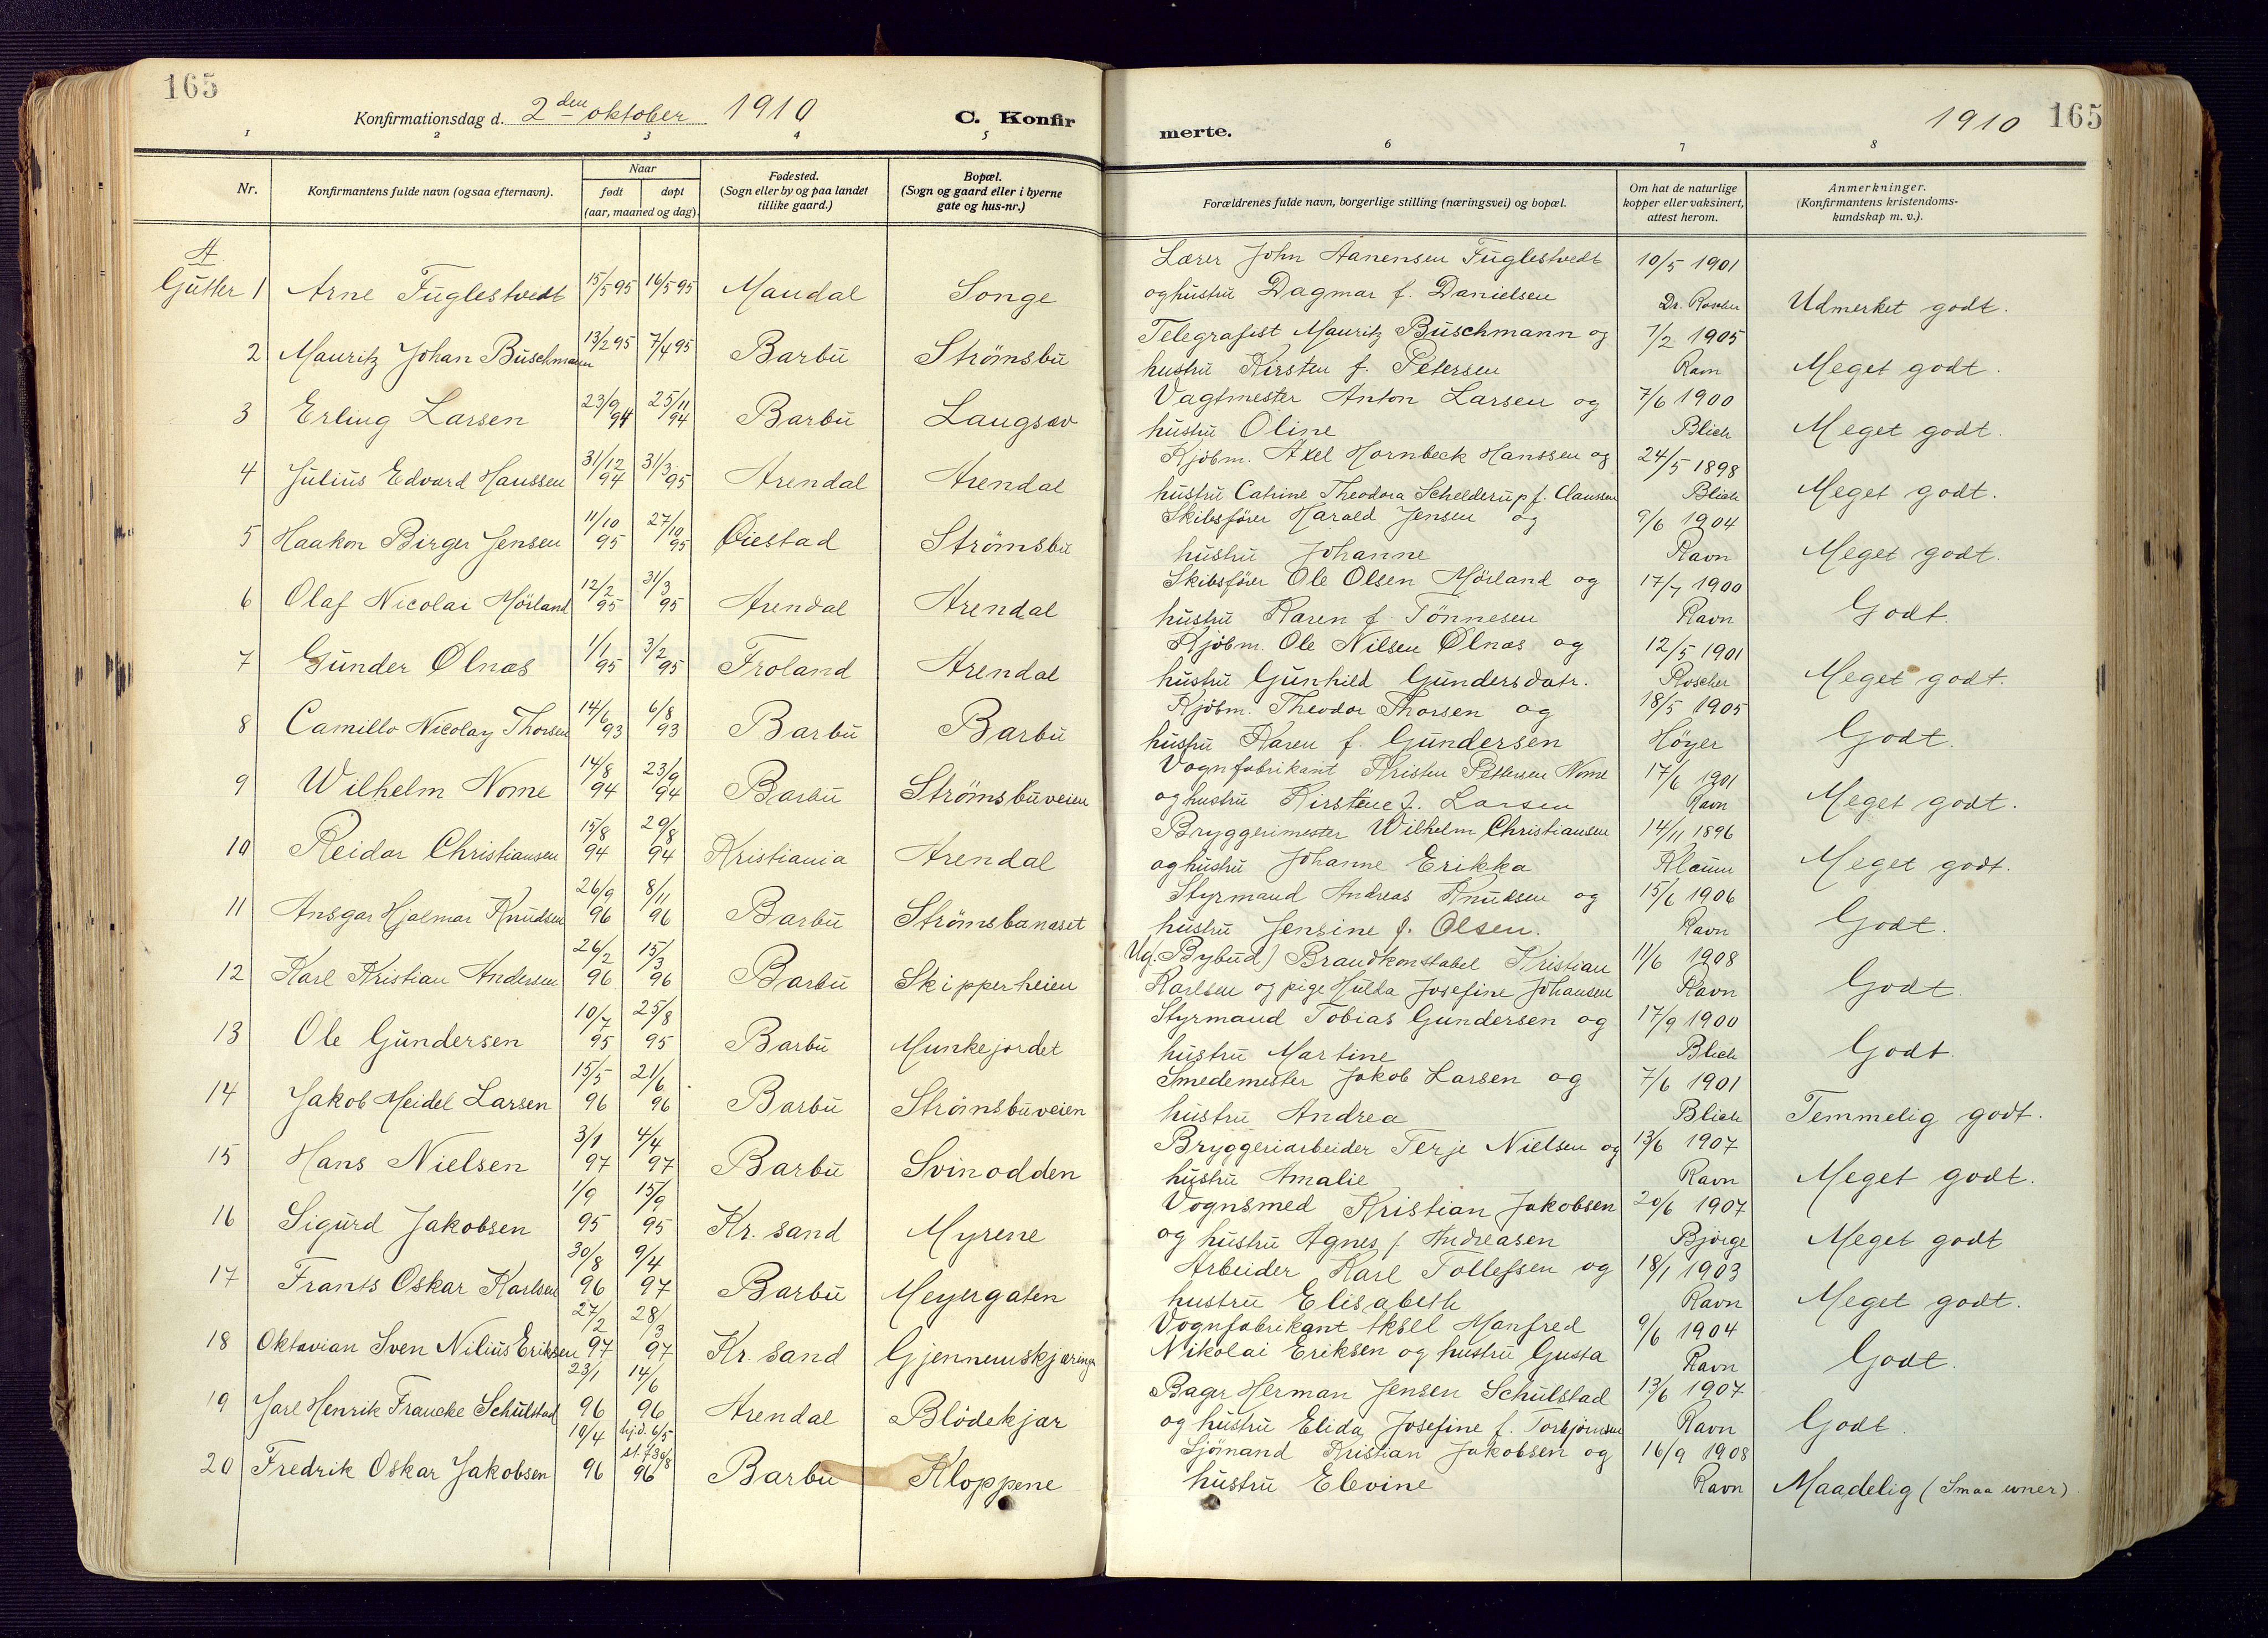 165
Konfirmationsdag d. 2den oktober 1910
C. Konfir
1 2 3 4 5
Nr.
Konfirmantens fulde navn (ogsaa efternavn).
Naar
født døpt
(aar, maaned og dag).
Fødested.
(Sogn eller by og paa landet
tillike gaard.)
Bopæl.
(Sogn og gaard eller i byerne
gate og hus-nr.)
A
Gutter 1 Arne Fuglestvedt 15/5 95 16/5 95 Mandal Songe
2 Mauritz Johan Buschmann 13/2 95 7/4 95 Barbu Strømsbu
3 Erling Larsen 23/9 94 25/11 94 Barbu Langsæv
4 Julius Edvard Hanssen 31/12 94 31/3 95 Arendal Arendal
5 Haakon Birger Jensen 11/10 95 27/10 95 Øiestad Strømsbu
6 Olaf Nicolai Mørland 12/2 95 31/3 95 Arendal Arendal
7 Gunder Ølnas 1/1 95 3/2 95 Froland Arendal
8 Camillo Nicolay Thorsen 14/6 93 6/8 93 Barbu Barbu
9 Wilhelm Nome 14/8 94 23/9 94 Barbu Strømsbuveien
10 Reidar Christiansen 15/8 94 29/8 94 Kristiania Arendal
11 Ansgar Hjalmar Knudsen 26/9 96 8/11 96 Barbu Strømsbunæset
12 Karl Kristian Andersen 26/2 96 15/3 96 Barbu Skipperheien
13 Ole Gundersen 10/7 95 25/8 95 Barbu Munkejordet
14 Jakob Meidel Larsen 15/5 96 21/6 96 Barbu Strømsbuveien
15 Hans Nielsen 3/1 97 4/4 97 Barbu Svinodden
16 Sigurd Jakobsen 1/9 95 15/9 95 Kr. sand Myrene
17 Frants Oskar Karlsen 30/8 96 9/4 97 Barbu Meyergaten
18 Oktavian Sven Nilius Eriksen 27/2 97 28/3 97 Kr. sand Gjennemskjæringen
19 Jarl Henrik Francke Schulstad 23/1 96 14/6 96 Arendal Blødekjær
20 Fredrik Oskar Jakobsen 10/4 96 hj.d. 6/5 st. f. 30/8 96 Barbu Kloppene
merte.
1910 165
6 7 8
Forældrenes fulde navn, borgerlige stilling (næringsvei) og bopæl.
Om hat de naturlige
kopper eller vaksinert,
attest herom.
Anmerkninger.
(Konfirmantens kristendoms-
kundskap m. v.).
Lærer John Aanensen Fuglestvedt 10/5 1901
og hustru Dagmar f. Danielsen Dr. Roscher Udmerket godt.
Telegrafist Mauritz Buschmann og 7/2 1905
hustru Kirsten f. Petersen Ravn Meget godt.
Vagtmester Anton Larsen og 7/6 1900
hustru Oline Blich Meget godt.
Kjøbm. Axel Hornbeck Hanssen og 24/5 1898
hustru Catrine Theodora Schelderup f. Claussen Blich Meget godt.
Skibsfører Harald Jensen og 9/6 1904
hustru Johanne Ravn Meget godt.
Skibsfører Ole Olsen Mørland og 17/7 1900
hustru Karen f. Tønnesen Ravn Godt.
Kjøbm. Ole Nilsen Ølnas og 12/5 1901
hustru Gunhild Gundersdatr. Roscher Meget godt.
Kjøbm. Theodor Thorsen og 18/5 1905
hustru Karen f. Gundersen Høyer Godt.
Vognfabrikant Kristen Pettersen Nome 17/6 1901
og hustru Kirstine f. Larsen Ravn Meget godt.
Bryggerimester Wilhelm Christiansen 14/11 1896
og hustru Johanne Erikka Klaum Meget godt.
Styrmand Andreas Knudsen og 15/6 1906
hustru Jensine f. Olsen. Ravn Godt.
Ug. (Bybud) Brandkonstabel Kristian 11/6 1908
Karlsen og pige Hulda Josefine Johansen Ravn Godt.
Styrmand Tobias Gundersen og 17/9 1900
hustru Martine Blich Godt.
Smedemester Jakob Larsen og 7/6 1901
hustru Andrea Blich Temmelig godt.
Bryggeriarbeider Terje Nielsen og 13/6 1907
hustru Amalie Ravn Meget godt.
Vognsmed Kristian Jakobsen 20/6 1907
og hustru Agnes f. Andreasen Bjørge Meget godt
Arbeider Karl Tollefsen og 18/1 1903
hustru Elisabeth Ravn Meget godt.
Vognfabrikant Aksel Manfred 9/6 1904
Nikolai Eriksen og hustru Gusta Ravn Godt.
Bager Herman Jensen Schulstad 13/6 1907
og hustru Elida Josefine f. Torbjørnsen Ravn Godt.
Sjømand Kristian Jakobsen og 16/9 1908
hustru Elevine Ravn Maadelig (Smaa evner)